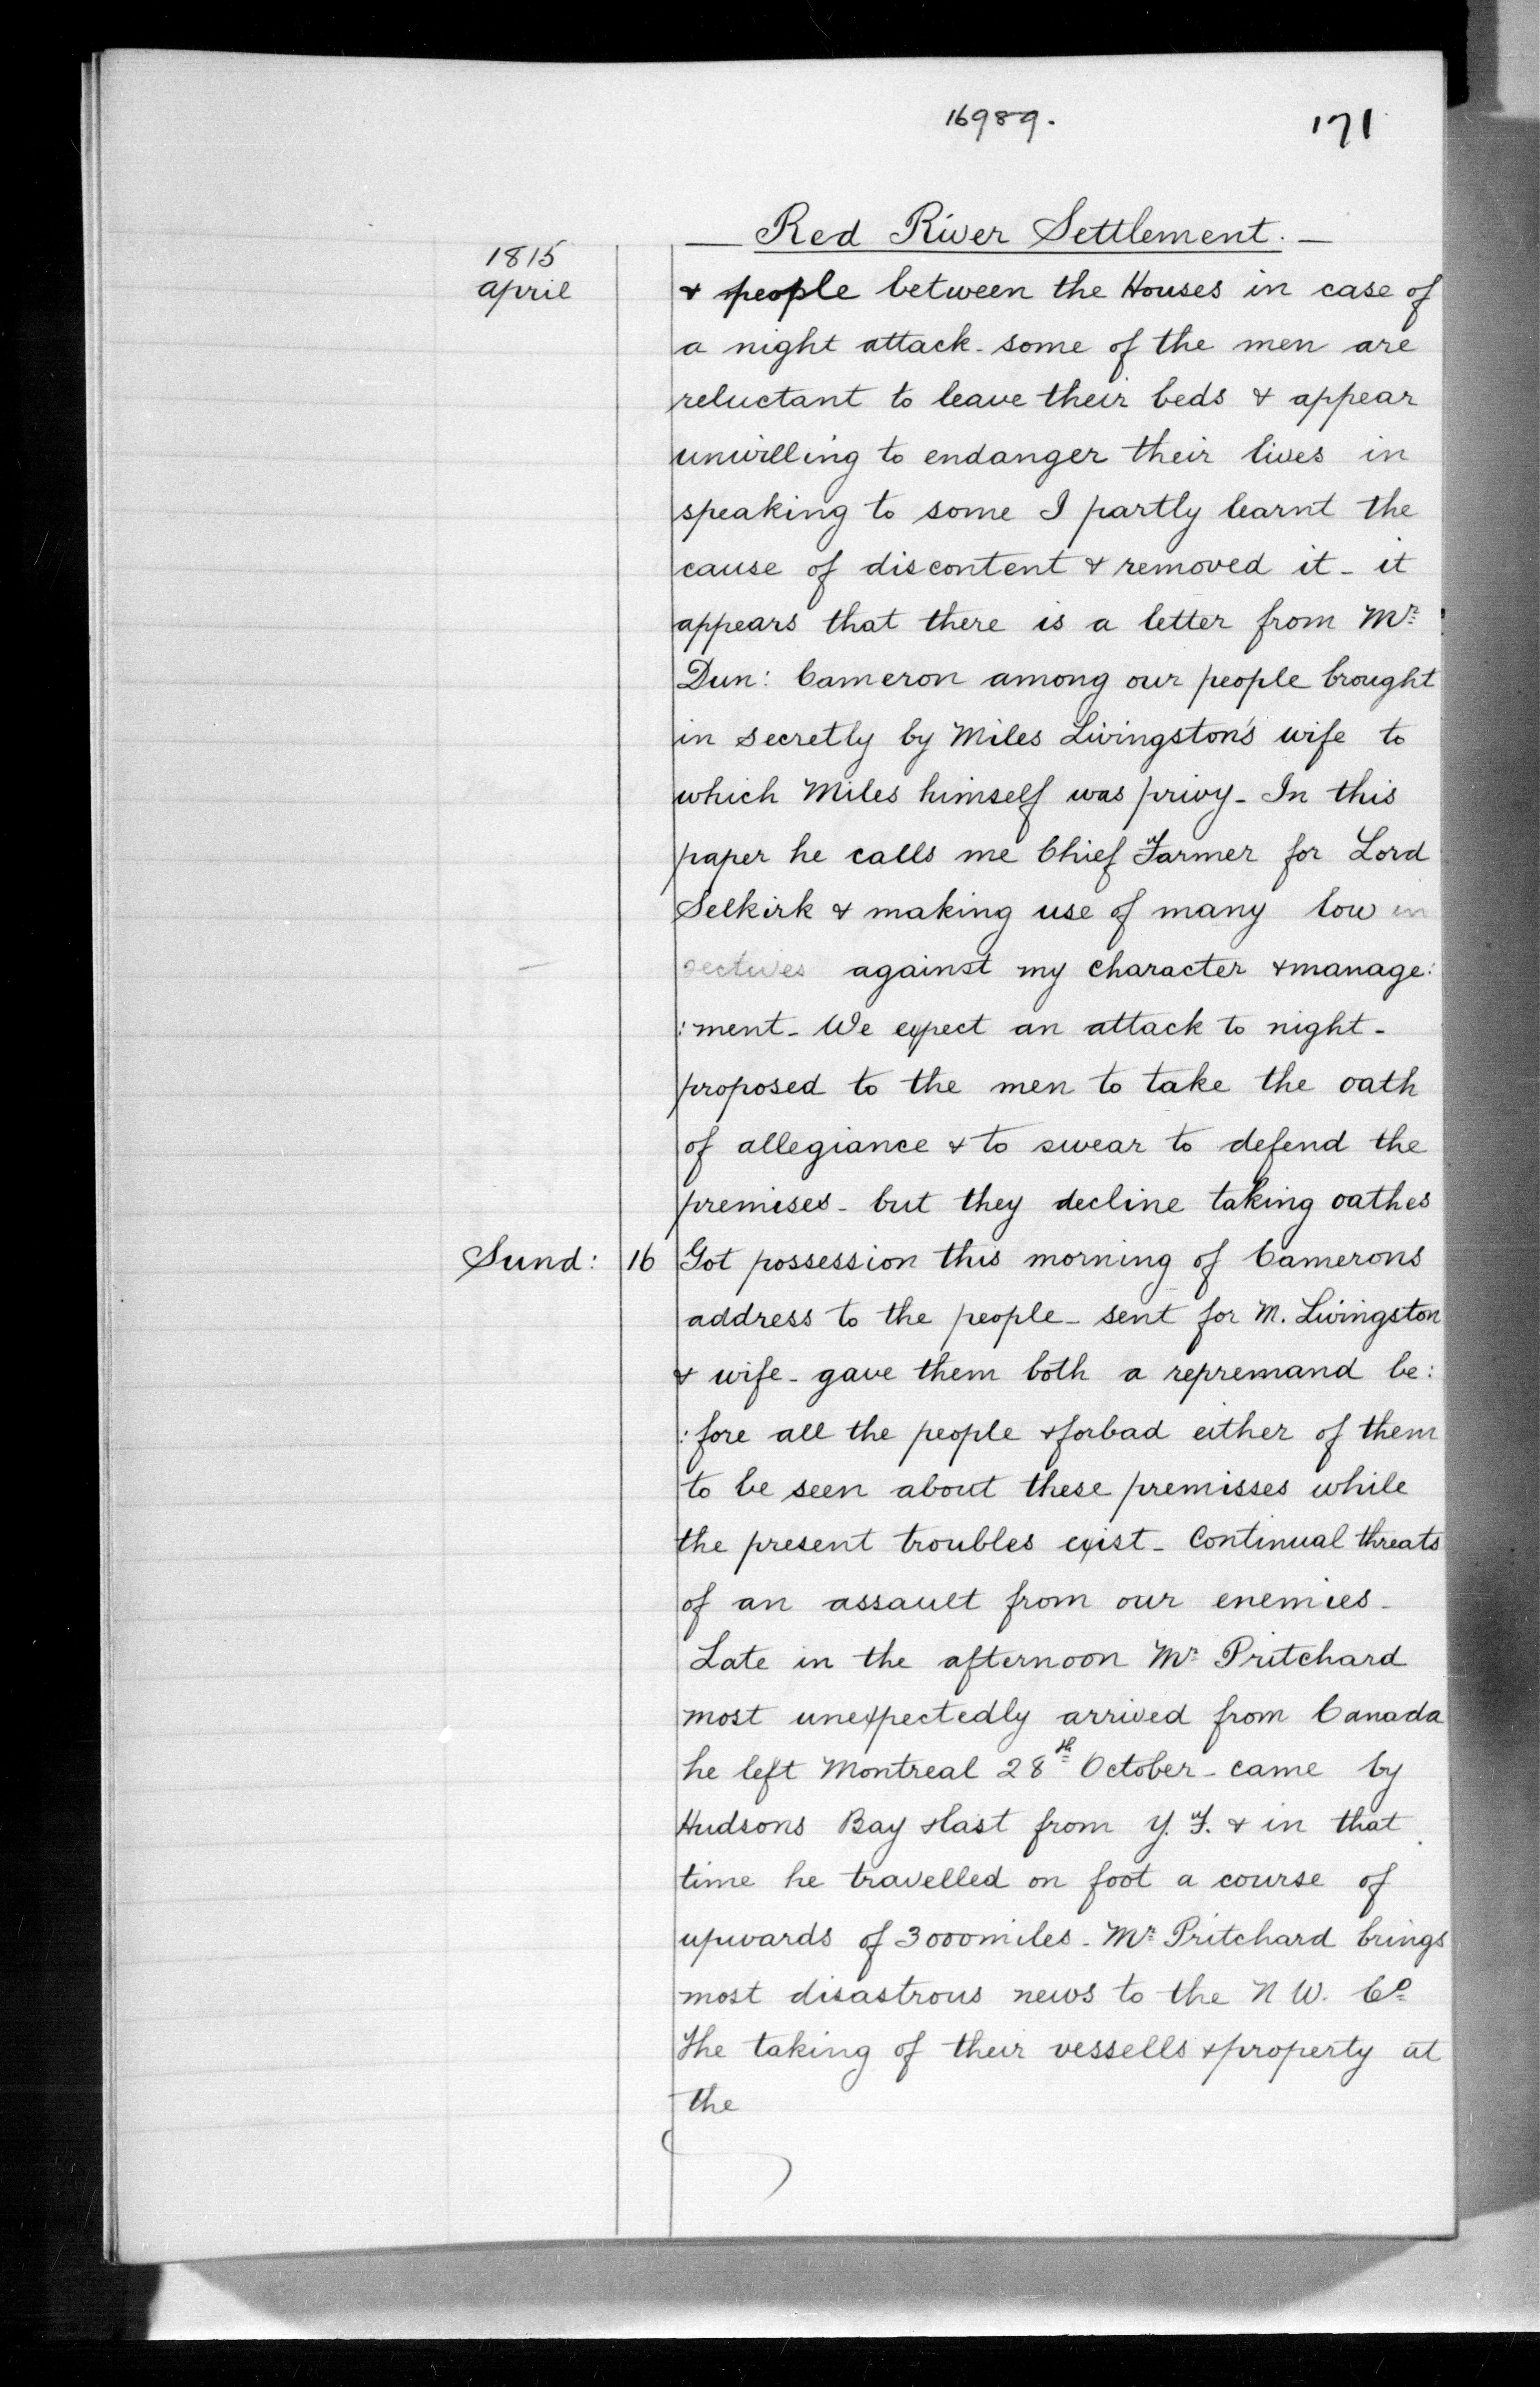 16989.
171
— Red River Settlement. —
1815
april
& people between the Houses in case of
a night attack - some of the men are
reluctant to leave their beds & appear
unwilling to endanger their lives in
speaking to some I partly learnt the
cause of discontent & removed it - it
appears that there is a letter from Mr:
Dun: Cameron among our people brought
in secretly by Miles Livingston's wife to
which Miles himself was privy - In this
paper he calls me Chief Farmer for Lord
Selkirk & making use of many low in
vectives against my character & manage:
:ment - We expect an attack to night -
proposed to the men to take the oath
of allegiance & to swear to defend the
premises - but they decline taking oathes
Sund: 16 Got possession this morning of Camerons
address to the people - sent for M. Livingston
& wife - gave them both a repremand be:
:fore all the people & forbad either of them
to be seen about these premisses while
the present troubles exist - Continual threats
of an assault from our enemies -
Late in the afternoon Mr: Pritchard
most unexpectedly arrived from Canada
he left Montreal 28th October - came by
Hudsons Bay & last from Y. F. & in that
time he travelled on foot a course of
upwards of 3000 miles - Mr: Pritchard brings
most disastrous news to the N W. Co
The taking of their vessells & property at
the